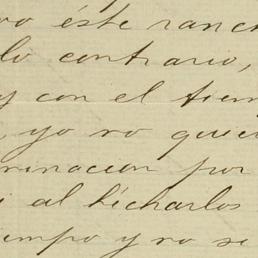 vo éste ranc
lo contrario,
y con el tiem
, yo no quie
rinacion por
i al licharlos
iempo y no se